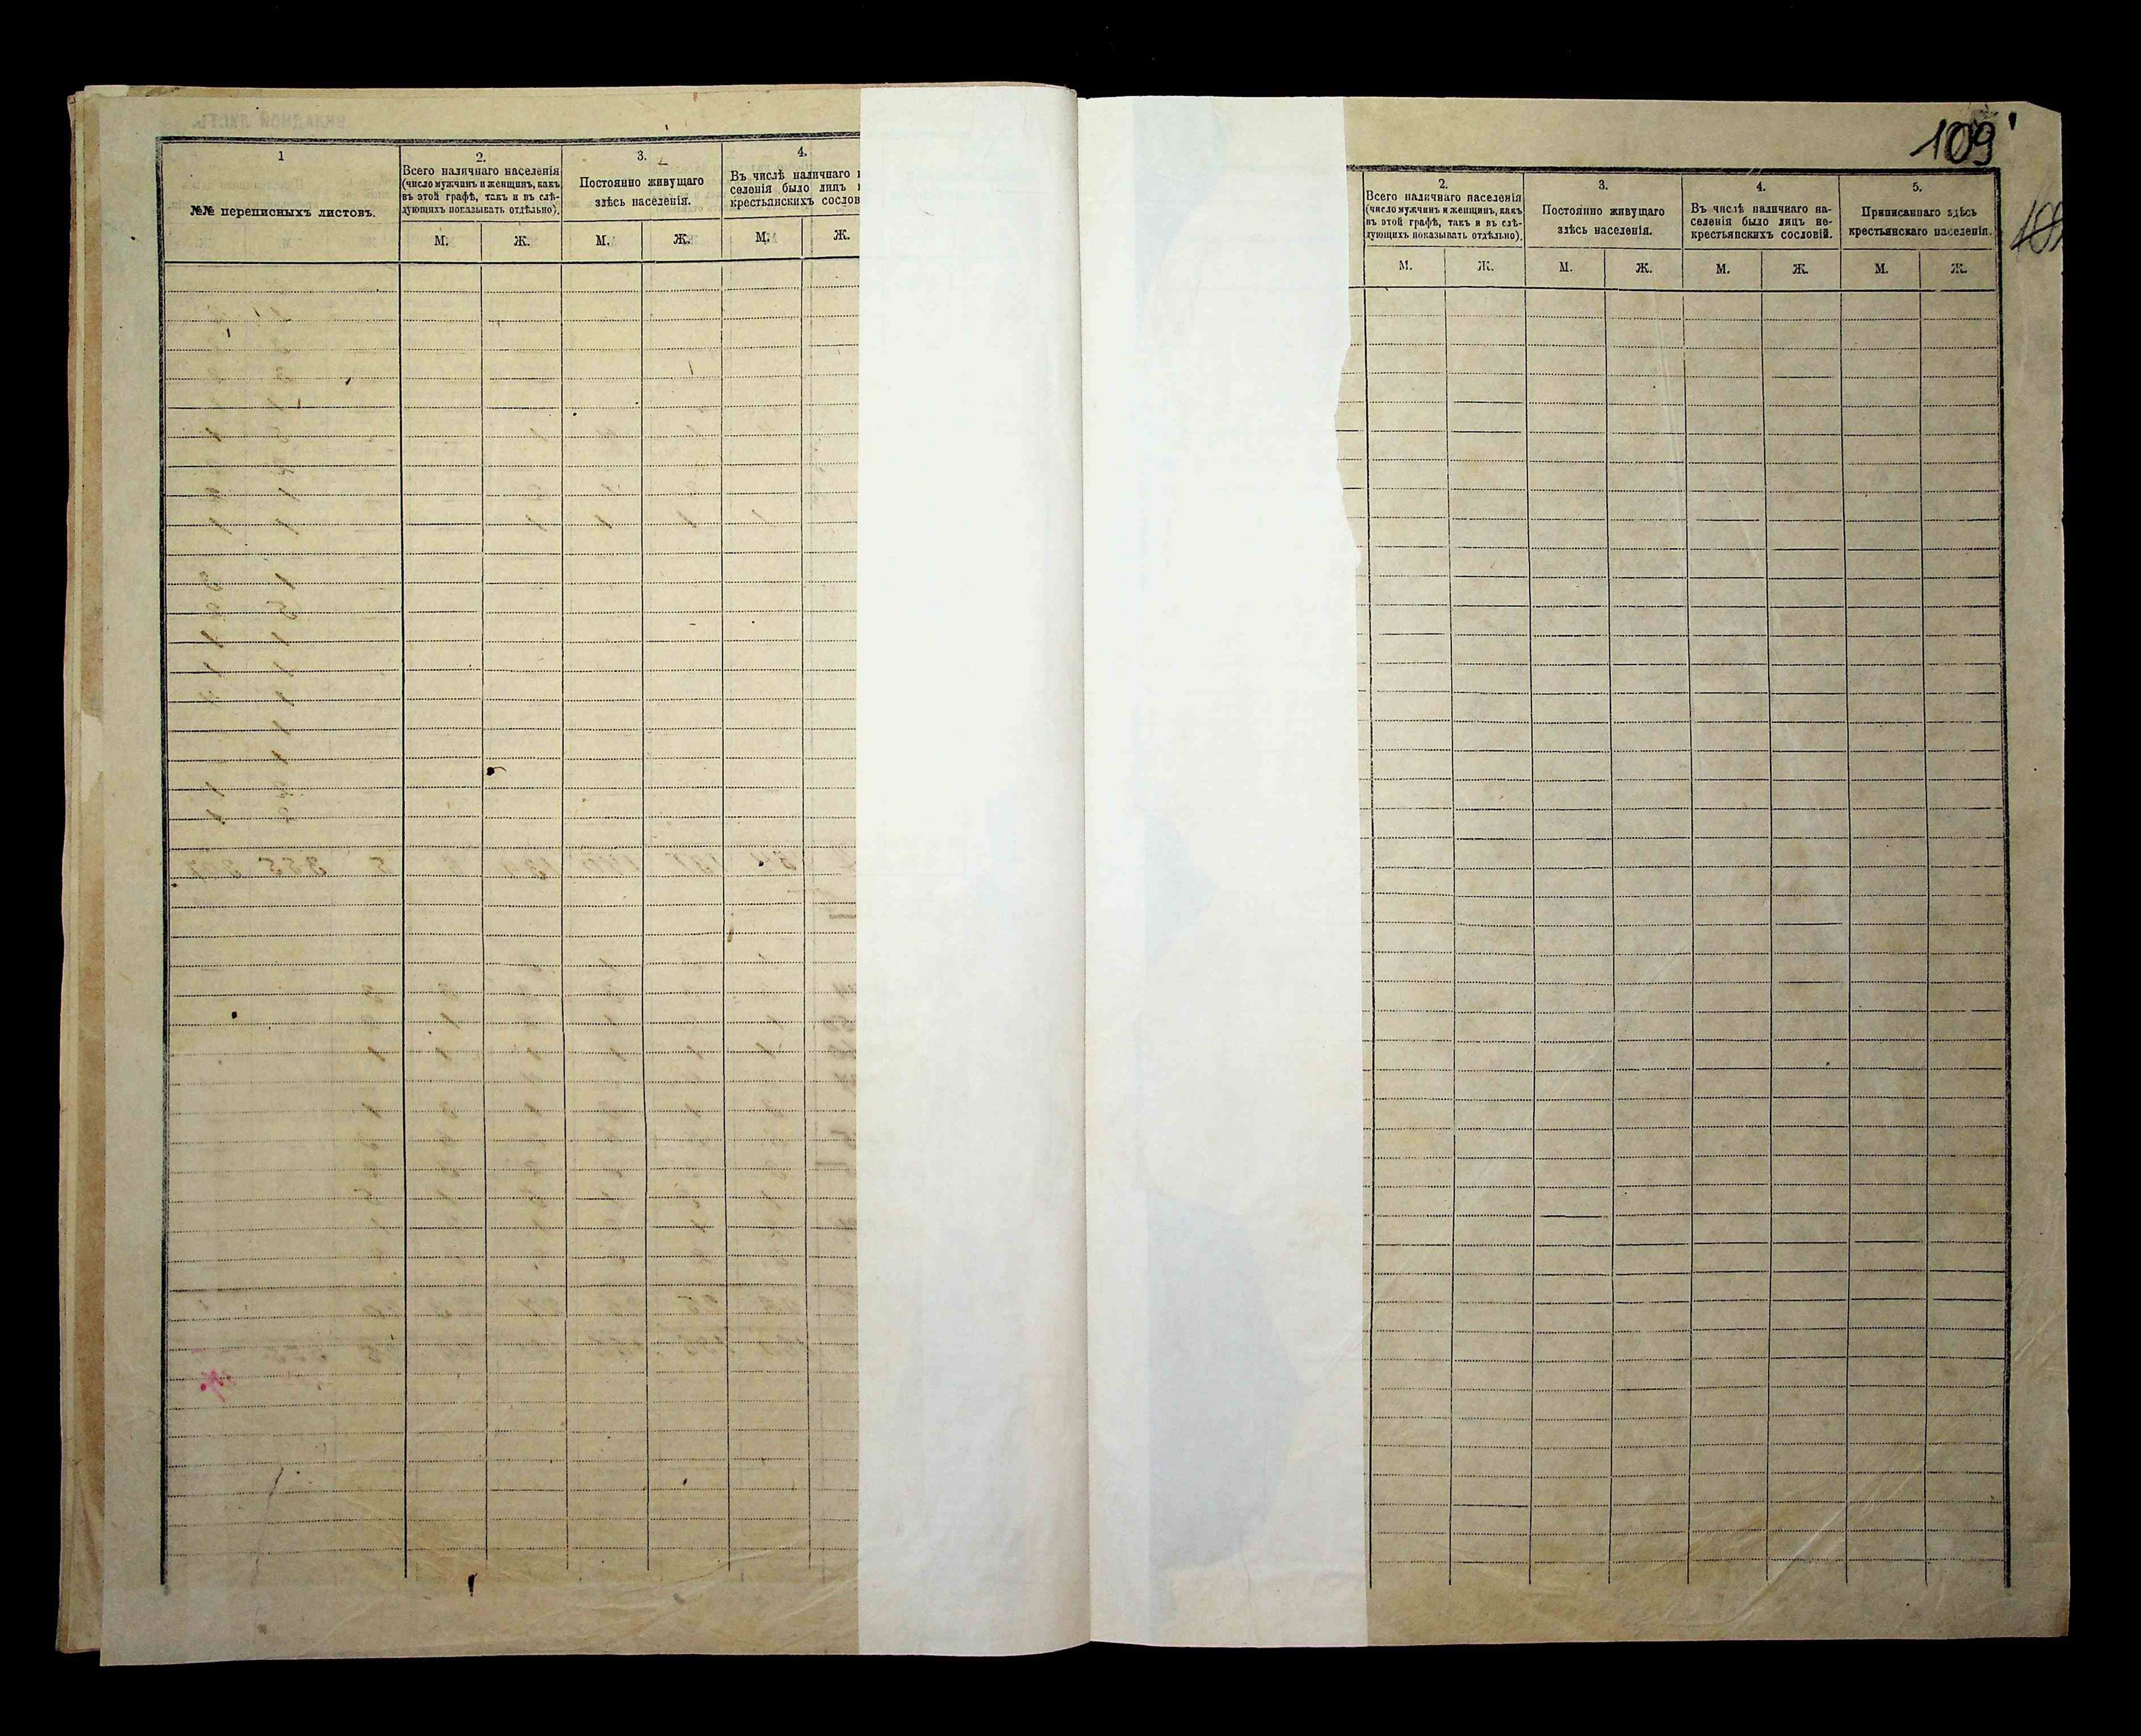 1
№№ переписныхъ листовъ.
2.
Всего наличнаго населенія
(число мужчинъ и женщинъ, какъ
въ этой графѣ, такъ и въ слѣ-
дующихъ показывать отдѣльно).
М. Ж.
3.
Постоянно живущаго
здѣсь населенія.
М. Ж.
4.
Въ числѣ наличнаго
селенія было лицъ
крестьянскихъ сослов
М. Ж.
109
2.
Всего наличнаго населенія
(число мужчинъ и женщинъ, какъ
въ этой графѣ, такъ и въ слѣ-
дующихъ показывать отдѣльно).
М. Ж.
3.
Постоянно живущаго
здѣсь населенія.
М. Ж.
4.
Въ числѣ наличнаго на-
селенія было лицъ не-
крестьянскихъ сословій.
М. Ж.
5.
Приписаннаго здѣсь
крестьянскаго населенія.
М. Ж.